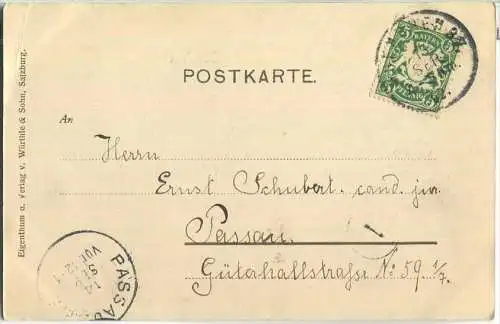 POSTKARTE.
An
Herrn
Ernst Schubert. cand. jur.
Passau.
Güterhallstraße № 59. 1/7.
Eigenthum u. Verlag v. Würthle & Sohn, Salzburg.
BAYERN
5 5
PFENNIG
PASSAU